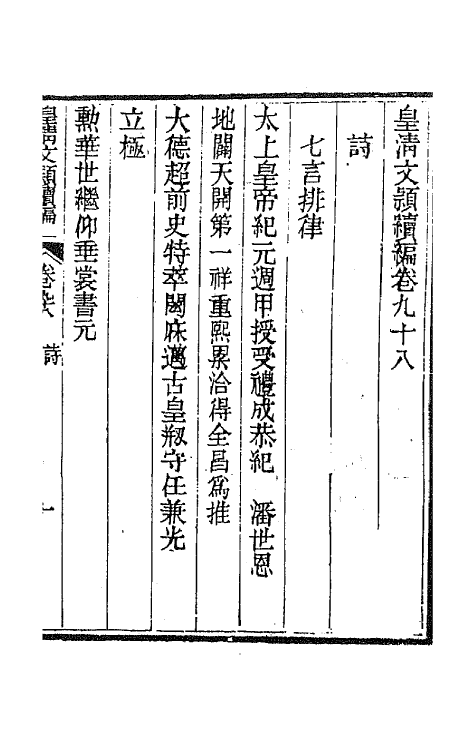 皇清文穎續編卷九十八
詩
七言排律
太上皇帝紀元週甲授受禮成恭紀 潘世恩
地闢天開第一祥重熙累洽得全昌爲推
大德超前史特萃閎庥邁古皇剙守任兼光
立極
勲華世繼仰垂裳書元
皇清文穎續編 卷九十八 詩 一